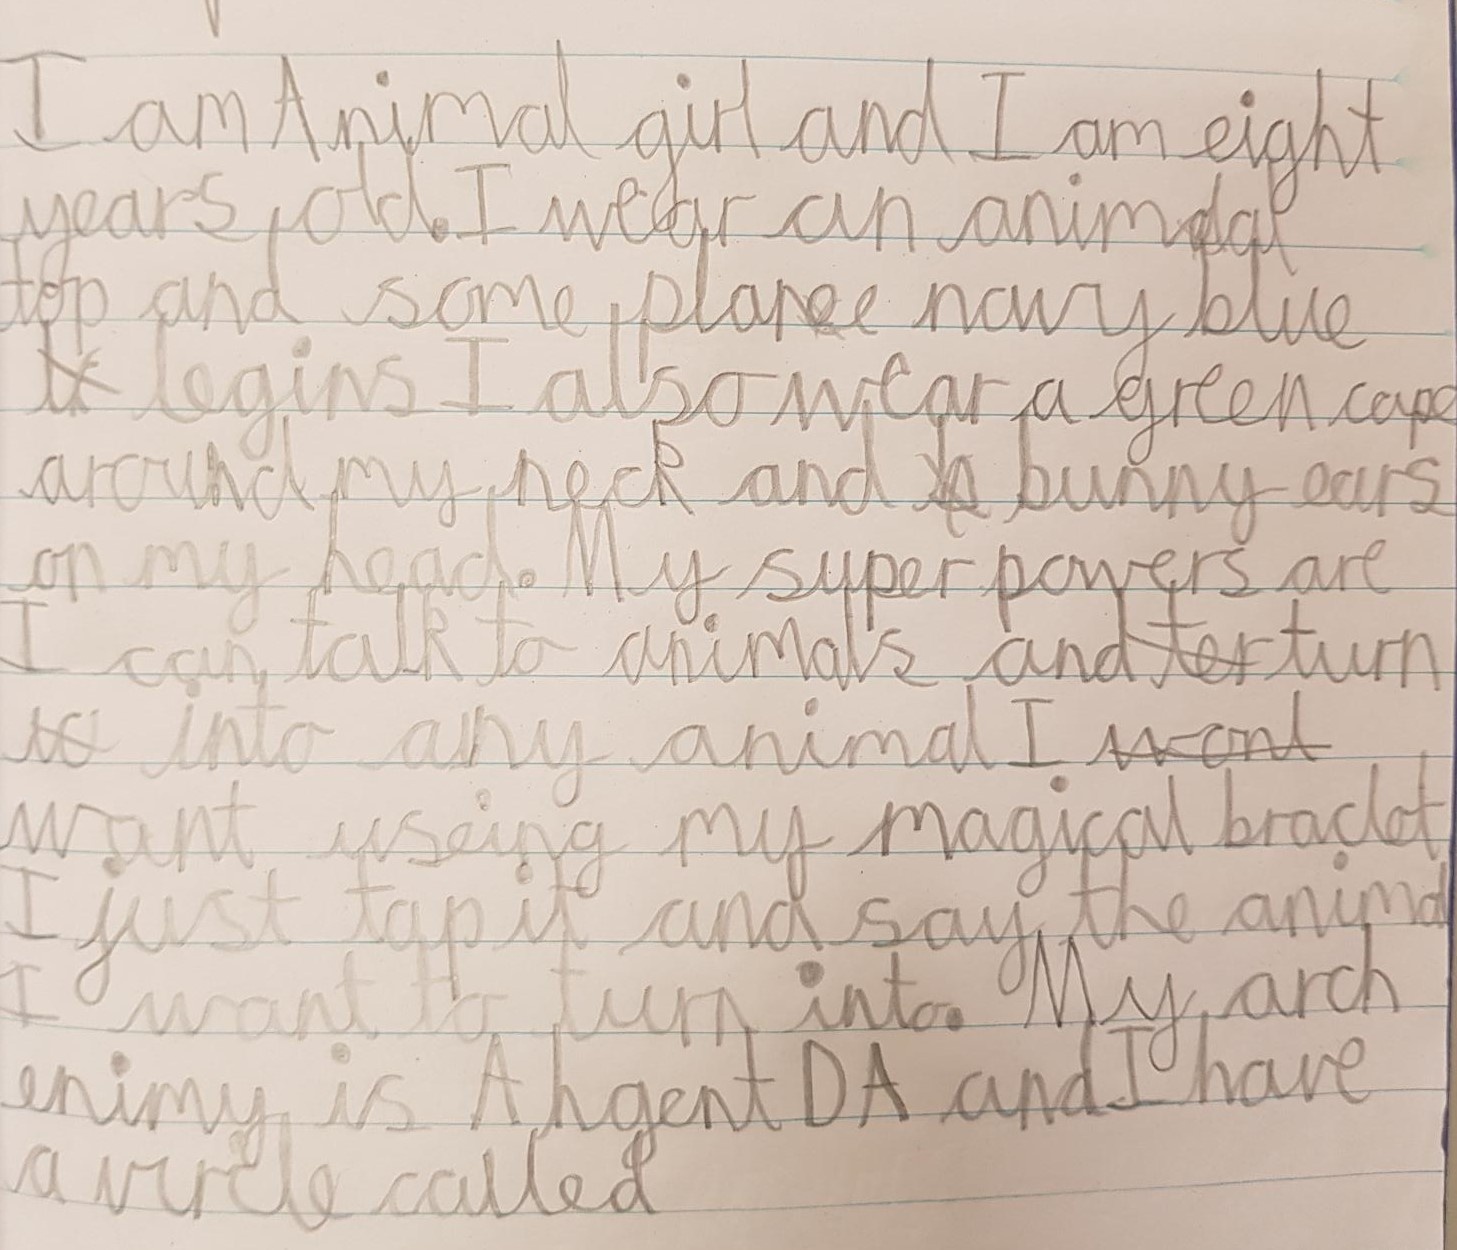 I am Animal girl and I am eight
years old. I wear an animal
top and some plane navy blue
legins I also wear a green cape
around my neck and bunny ears
on my head. My super powers are
I can talk to animals and ter turn
into any animal I wont
want useing my magical braclet
I just tap it and say the animal
I want to turn into. My arch
enimy is Ahgent DA and I have
a called